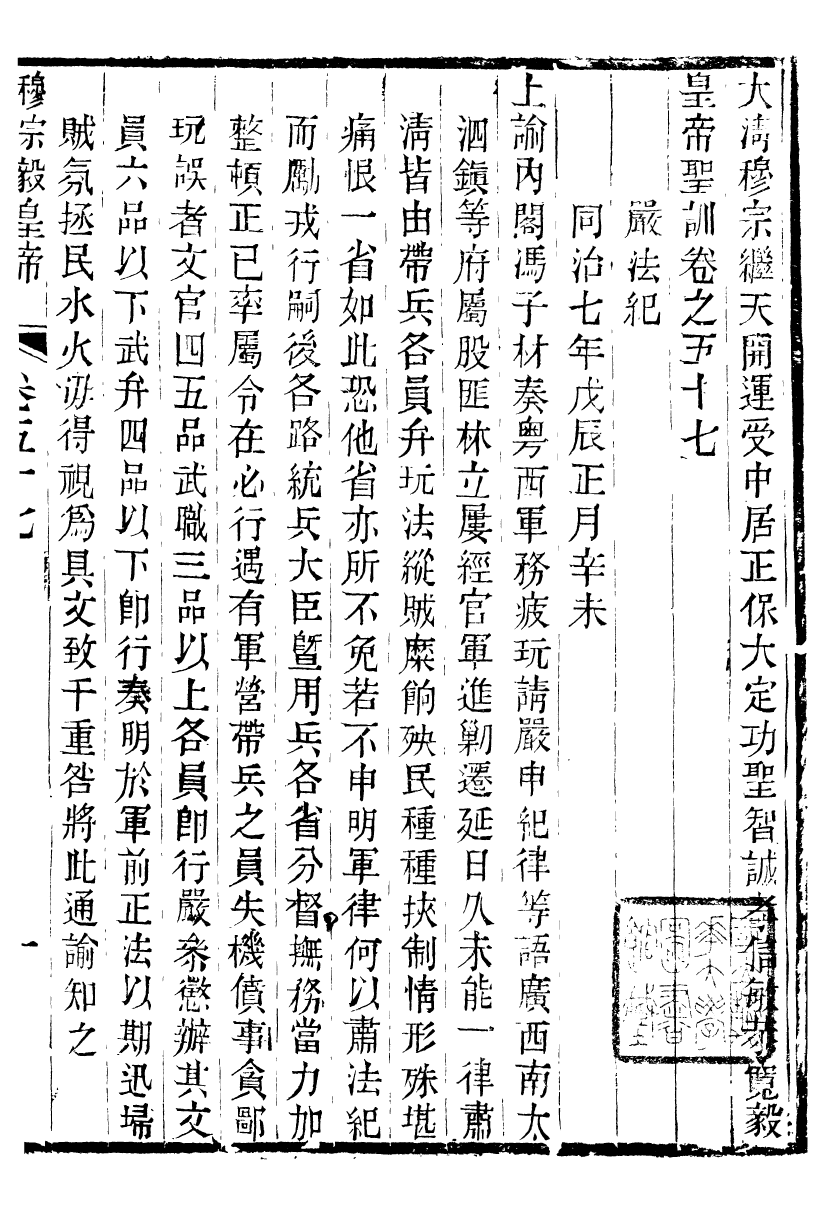 大淸穆宗繼天開運受中居正保大定功聖智誠孝信敏恭寬毅
皇帝聖訓卷之五十七
嚴法紀
同治七年戊辰正月辛未
上諭內閣馮子材奏粵西軍務疲玩請嚴申紀律等語廣西南太
泗鎭等府屬股匪林立屢經官軍進勦遷延日久未能一律肅
淸皆由帶兵各員弁玩法縱賊糜餉殃民種種挾制情形殊堪
痛恨一省如此恐他省亦所不免若不申明軍律何以肅法紀
而勵戎行嗣後各路統兵大臣曁用兵各省分督撫務當力加
整頓正已率屬令在必行遇有軍營帶兵之員失機僨事貪鄙
玩誤者文官四五品武職三品以上各員卽行嚴叅懲辦其文
員六品以下武弁四品以下卽行奏明於軍前正法以期迅埽
賊氛拯民水火毋得視爲具文致干重咎將此通諭知之
穆宗毅皇帝 卷五十七 一